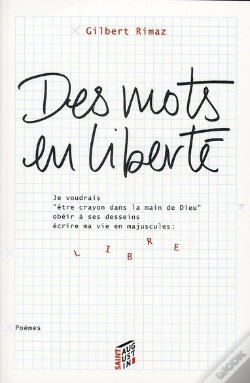 Gilbert Rimaz
Des mots
en liberté
Je voudrais
"être crayon dans la main de Dieu"
obéir à ses desseins
écrire ma vie en majuscules:
LIBRE
Poèmes
SAINT
AUG
UST
IN
wook